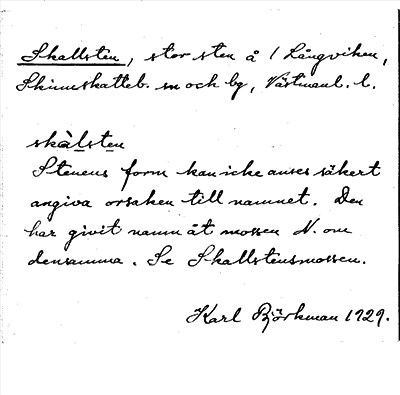 Skallsten, stor sten å / Långviken,
Skinnskatteb. sn och bg, Västmanl. l.
skàlstɛn
Stenens form kan icke anses säkert
angiva orsaken till namnet. Den
har givit namn åt mossen N. om
densamma. Se Skallstensmossen.
Karl Björkman 1929.